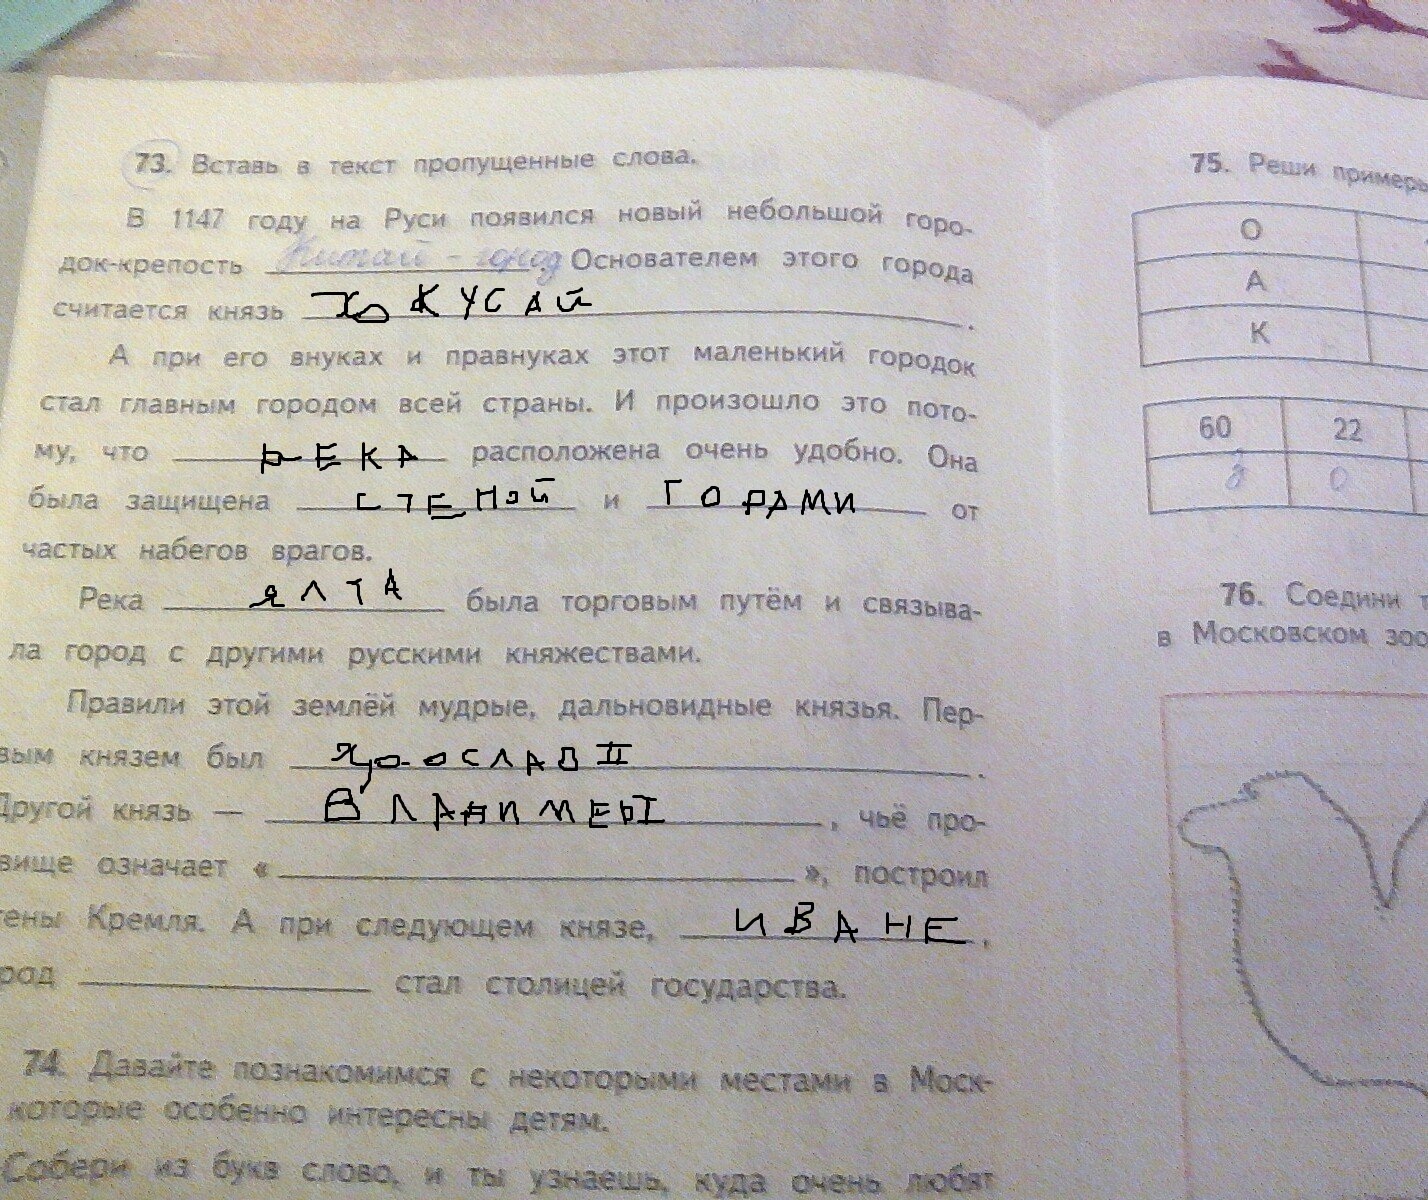 73. Вставь в текст пропущенные слова.
В 1147 году на Руси появился новый небольшой горо-
док-крепость Китай-город. Основателем этого города
считается князь ХОКУСАЙ.
А при его внуках и правнуках этот маленький городок
стал главным городом всей страны. И произошло это пото-
му, что РЕКА расположена очень удобно. Она
была защищена СТЕНОЙ и ГОРАМИ от
частых набегов врагов.
Река ЯЛТА была торговым путём и связыва-
ла город с другими русскими княжествами.
Правили этой землёй мудрые, дальновидные князья. Пер-
вым князем был ЯРОСЛАВ II.
Другой князь — , чьё про-
вище означает « », построил
тены Кремля. А при следующем князе, ИВАНЕ,
род стал столицей государства.
74. Давайте познакомимся с некоторыми местами в Моск-
которые особенно интересны детям.
Собери из букв слово, и ты узнаешь, куда очень любят
75. Реши примеры
О
А
К
60 22
0
76. Соедини т
в Московском зоо